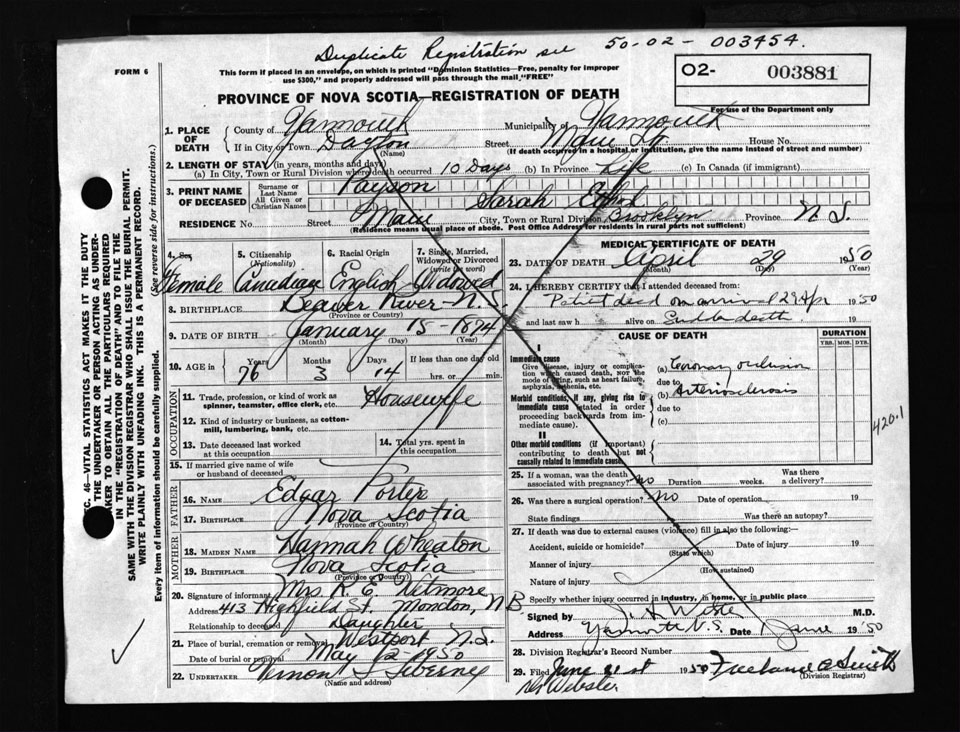 Duplicate Registration see 50-02-003454.
FORM 6
This form if placed in an envelope, on which is printed "Dominion Statistics—Free, penalty for improper
use $300," and properly addressed will pass through the mail "FREE"
02- 003881
For use of the Department only
PROVINCE OF NOVA SCOTIA—REGISTRATION OF DEATH
1. PLACE OF DEATH
County of Yarmouth Municipality of Yarmouth
If in City or Town Street Main St House No.
(Name) (If death occurred in a hospital or institution, give the name instead of street and number)
2. LENGTH OF STAY (in years, months and days)
(a) In City, Town or Rural Division where death occurred 10 Days (b) In Province Life (c) In Canada (if immigrant)
3. PRINT NAME OF DECEASED
Surname or Last Name Payson
All Given or Christian Names Sarah Ethel
RESIDENCE No. Street Main City, Town or Rural Division Brooklyn Province N S.
(Residence means usual place of abode. Post Office Address for residents in rural parts not sufficient)
4. Sex Female
5. Citizenship (Nationality) Canadian
6. Racial Origin English
7. Single, Married, Widowed or Divorced (write the word) Widowed
8. BIRTHPLACE Beaver River - N.S.
(Province or Country)
9. DATE OF BIRTH January 15 - 1874
(Month) (Day) (Year)
10. AGE in Years 76 Months 3 Days 14 If less than one day old hrs. or min.
OCCUPATION
11. Trade, profession, or kind of work as spinner, teamster, office clerk, etc. Housewife
12. Kind of industry or business, as cotton-mill, lumbering, bank, etc.
13. Date deceased last worked at this occupation
14. Total yrs. spent in this occupation
15. If married give name of wife or husband of deceased
FATHER
16. NAME Edgar Porter
17. BIRTHPLACE Nova Scotia
(Province or Country)
MOTHER
18. MAIDEN NAME Hannah Wheaton
19. BIRTHPLACE Nova Scotia
(Province or Country)
20. Signature of informant Mrs. R. E. Wetmore
Address 413 Highfield St. Moncton, N B
Relationship to deceased Daughter
21. Place of burial, cremation or removal Westport N.S.
Date of burial or removal May 2 - 1950
22. UNDERTAKER Vernon S
(Name and address)
MEDICAL CERTIFICATE OF DEATH
23. DATE OF DEATH April 29 1950
(Month) (Day) (Year)
24. I HEREBY CERTIFY that I attended deceased from:
dead on arrival 29 Apr 1950
and last saw h alive on Sudden death 19
CAUSE OF DEATH
DURATION
YRS. MOS. DYS.
I
Immediate cause
Give disease, injury or complication which caused death, not the mode of dying, such as heart failure, asphyxia, asthenia, etc.
(a) Coronary occlusion
due to
(b) Arteriosclerosis
Morbid conditions, if any, giving rise to immediate cause (stated in order proceeding backwards from immediate cause).
due to
(c)
II
Other morbid conditions (if important) contributing to death but not causally related to immediate cause.
420.1
25. If a woman, was the death associated with pregnancy? no Duration weeks. Was there a delivery?
26. Was there a surgical operation? no Date of operation 19
State findings Was there an autopsy?
27. If death was due to external causes (violence) fill in also the following:—
Accident, suicide or homicide? Date of injury 19
(State which)
Manner of injury
(How sustained)
Nature of injury
Specify whether injury occurred in industry, in home, or in public place
Signed by M.D.
Address Yarmouth N.S. Date 1 June 1950
28. Division Registrar's Record Number
29. Filed June 21st 1950
(Division Registrar)
Dr Webster
SEC. 46—VITAL STATISTICS ACT MAKES IT THE DUTY
OF THE UNDERTAKER OR PERSON ACTING AS UNDER-
TAKER TO OBTAIN ALL THE PARTICULARS REQUIRED
IN THE "REGISTRATION OF DEATH" AND TO FILE THE
SAME WITH THE DIVISION REGISTRAR WHO SHALL ISSUE THE BURIAL PERMIT.
WRITE PLAINLY WITH UNFADING INK. THIS IS A PERMANENT RECORD.
Every item of information should be carefully supplied.
(See reverse side for instructions.)